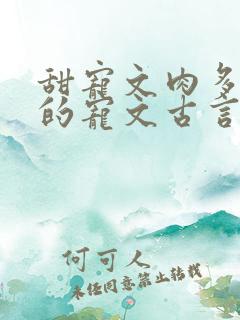 甜寵文肉多
的寵文古言
何可人
未经同意禁止转载